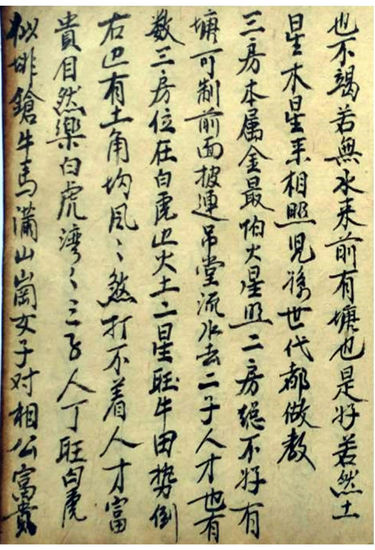 也不竭若無水来前有塘也是好若然土
星木星来相照兒孫世代都做教
三房本属金最怕火星照二房總不好有
塘可制前面披連吊堂流水去二子人才也有
数三房位在白虎边火土二星旺牛田势倒
右边有土角坳風〻煞打不着人才富
貴自然樂白虎湾〻三子人丁旺白虎
似排鎗牛馬滿山崗女子对相公富貴